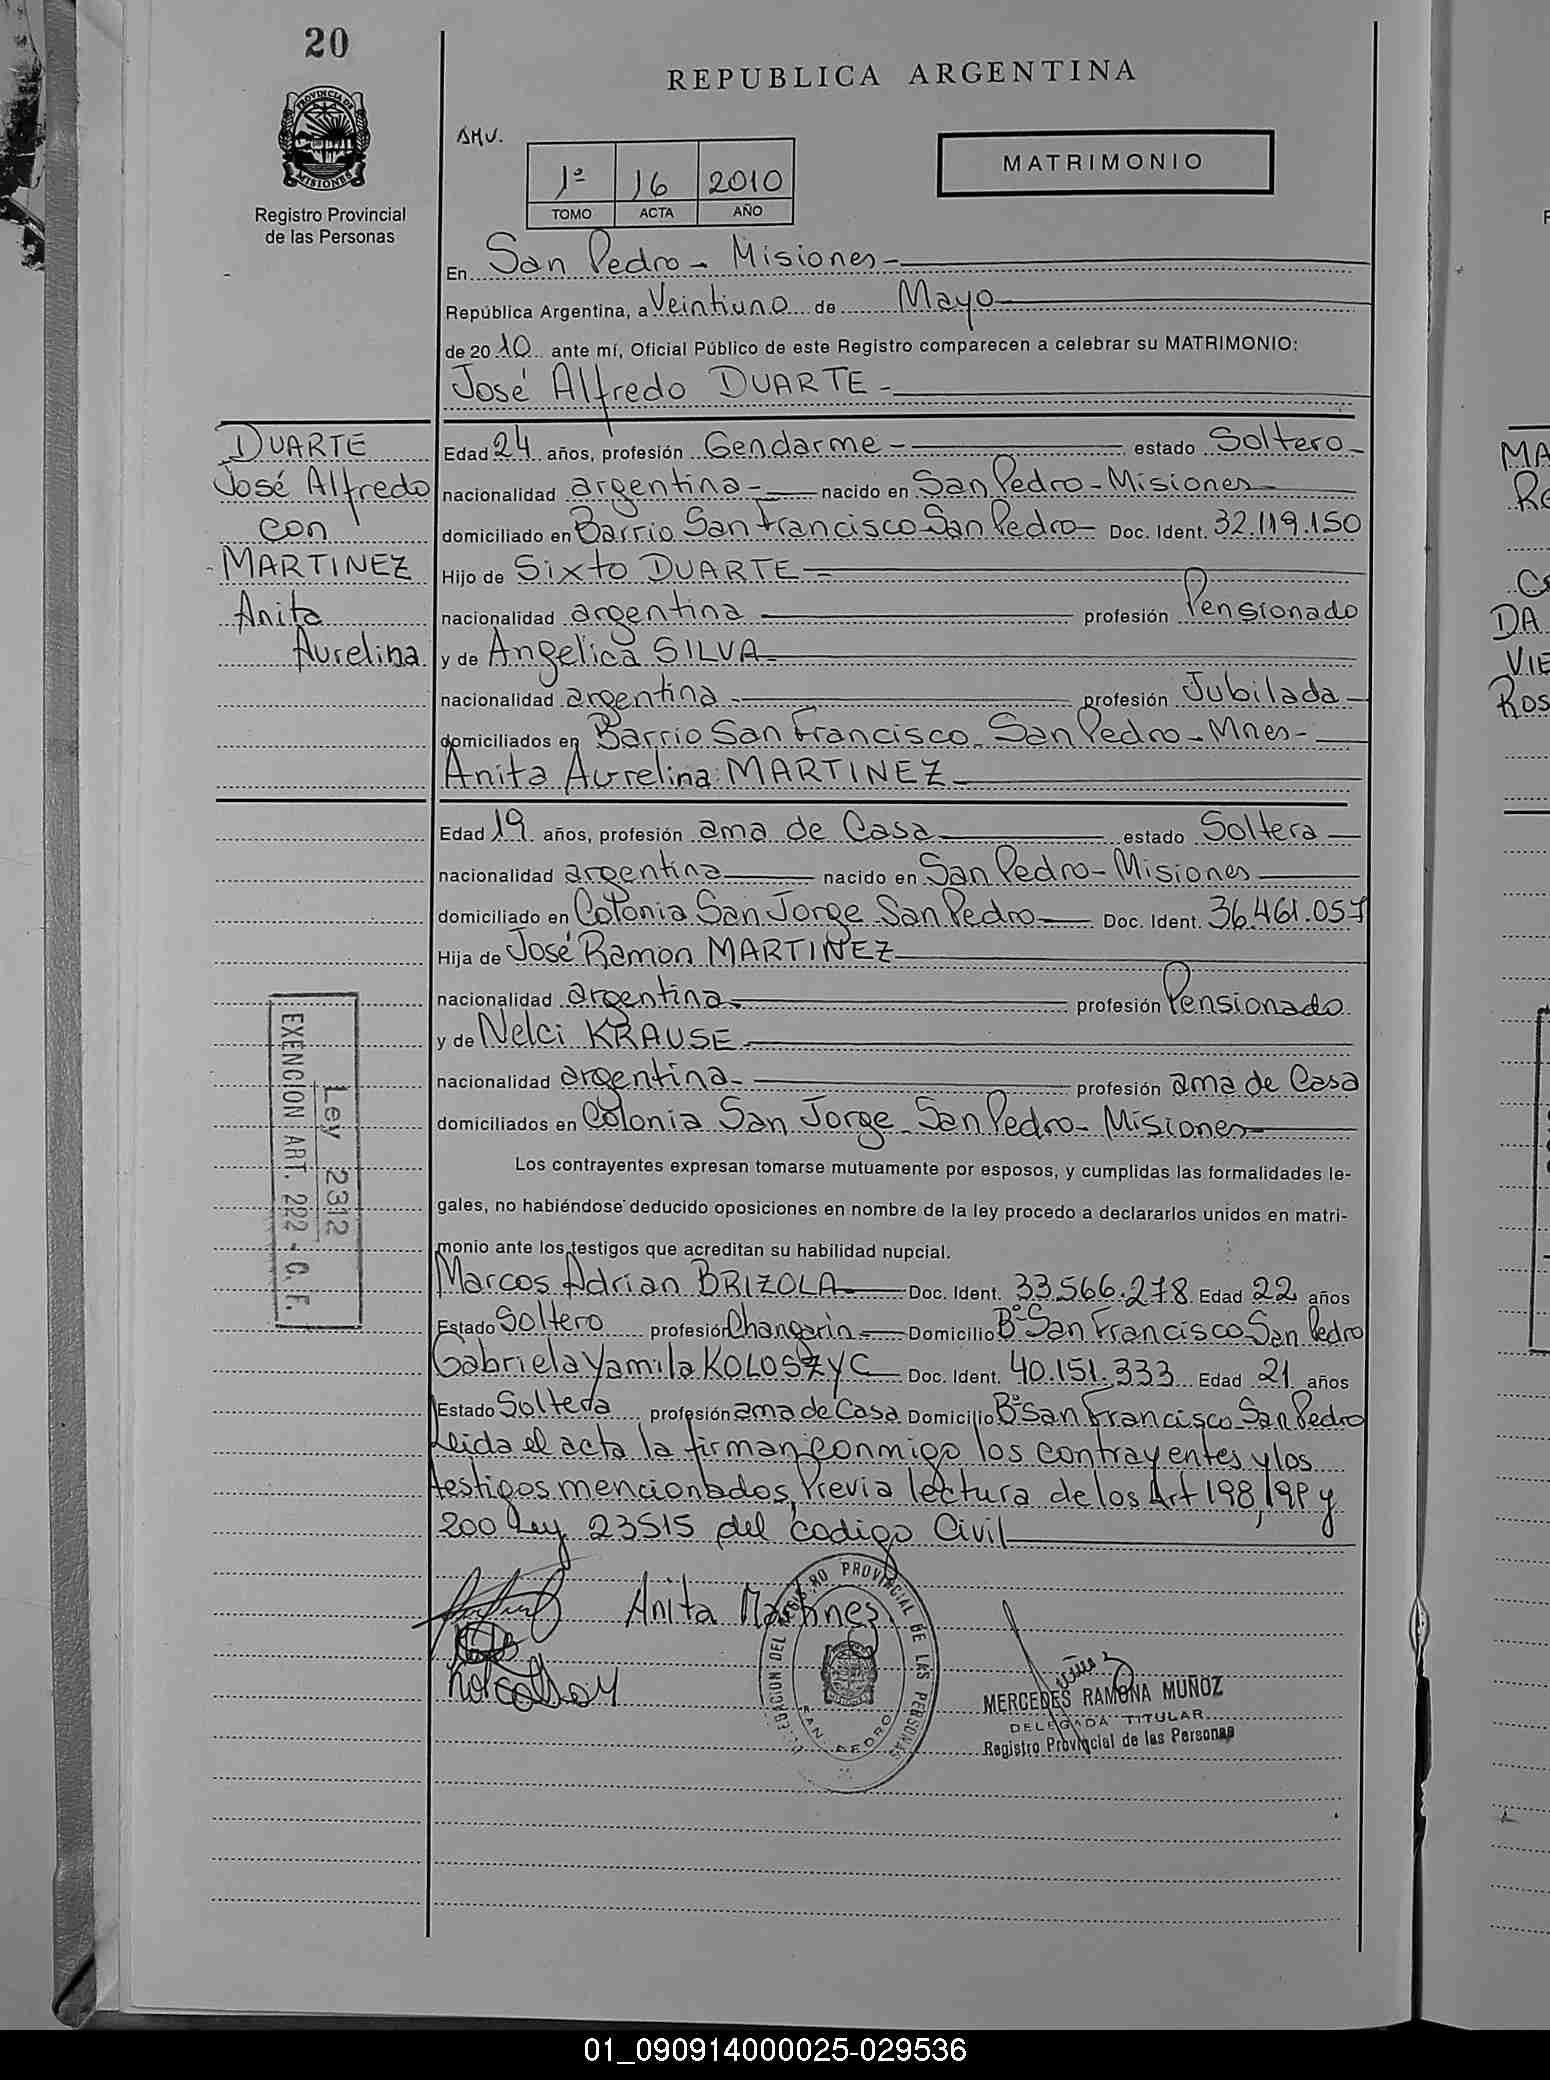 20
REPUBLICA ARGENTINA
PROVINCIA DE
MISIONES
Registro Provincial
de las Personas
1º 16 2010
TOMO ACTA AÑO
MATRIMONIO
En San Pedro - Misiones -
República Argentina, a Veintiuno de Mayo
de 2010 ante mí, Oficial Público de este Registro comparecen a celebrar su MATRIMONIO:
José Alfredo DUARTE -
DUARTE
José Alfredo
con
MARTINEZ
Anita
Aurelina
Edad 24 años, profesión Gendarme - estado Soltero -
nacionalidad argentina - nacido en San Pedro - Misiones
domiciliado en Barrio San Francisco San Pedro - Doc. Ident. 32.119.150
Hijo de Sixto DUARTE -
nacionalidad argentina profesión Pensionado
y de Angelica SILVA -
nacionalidad argentina - profesión Jubilada -
domiciliados en Barrio San Francisco - San Pedro - Mnes -
Anita Aurelina MARTINEZ -
Edad 19 años, profesión ama de Casa estado Soltera -
nacionalidad argentina nacido en San Pedro - Misiones
domiciliado en Colonia San Jorge San Pedro Doc. Ident. 36.461.057
Hija de José Ramon MARTINEZ
nacionalidad argentina - profesión Pensionado
y de Nelci KRAUSE
nacionalidad argentina - profesión ama de Casa
domiciliados en Colonia San Jorge - San Pedro - Misiones
Ley 2312
EXENCION ART. 222 - C. F.
Los contrayentes expresan tomarse mutuamente por esposos, y cumplidas las formalidades le-
gales, no habiéndose deducido oposiciones en nombre de la ley procedo a declararlos unidos en matri-
monio ante los testigos que acreditan su habilidad nupcial.
Marcos Adrian BRIZOLA Doc. Ident. 33.566.278 Edad 22 años
Estado Soltero profesión Changarin Domicilio Bº San Francisco San Pedro
Gabriela Yamila KOLOSZYC Doc. Ident. 40.151.333 Edad 21 años
Estado Soltera profesión ama de Casa Domicilio Bº San Francisco San Pedro
Leida el acta la firman conmigo los contrayentes y los
testigos mencionados, Previa lectura de los Art 198, 199 y
200 Ley 23515 del codigo Civil
Anita Martinez
DELEGACION DEL REGISTRO PROVINCIAL DE LAS PERSONAS
SAN PEDRO
MERCEDES RAMONA MUÑOZ
DELEGADA TITULAR
Registro Provincial de las Personas
MA
DA
VIE
Ros
01_090914000025-029536